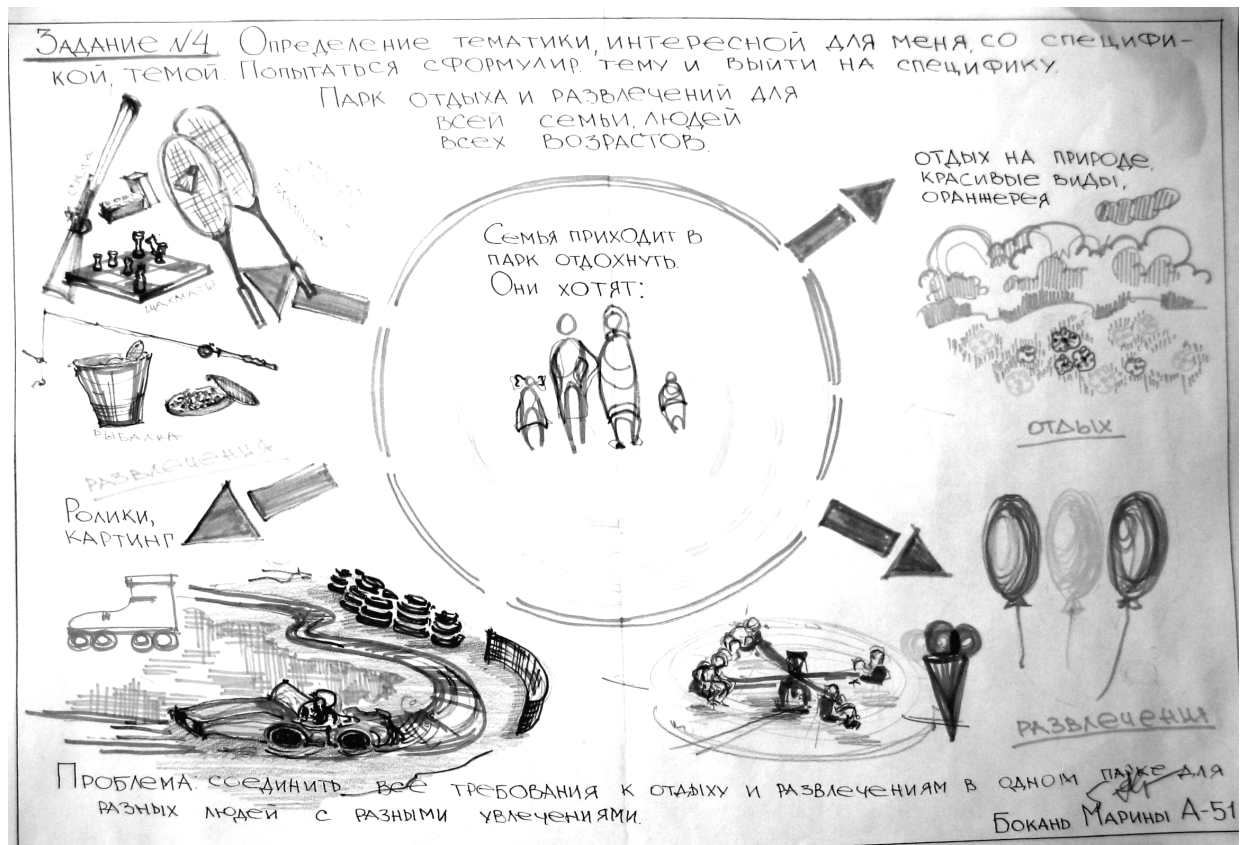 Задание №4. Определение тематики, интересной для меня, со специфи-
кой, темой. Попытаться сформулир. тему и выйти на специфику.
Парк отдыха и развлечений для
всей семьи, людей
всех возрастов.
охота
шахматы
рыбалка
развлечения
Ролики,
картинг
Семья приходит в
парк отдохнуть.
Они хотят:
отдых на природе,
красивые виды,
оранжерея
отдых
развлечения
Проблема: соединить все требования к отдыху и развлечениям в одном парке для
разных людей с разными увлечениями.
Бокань Марины А-51